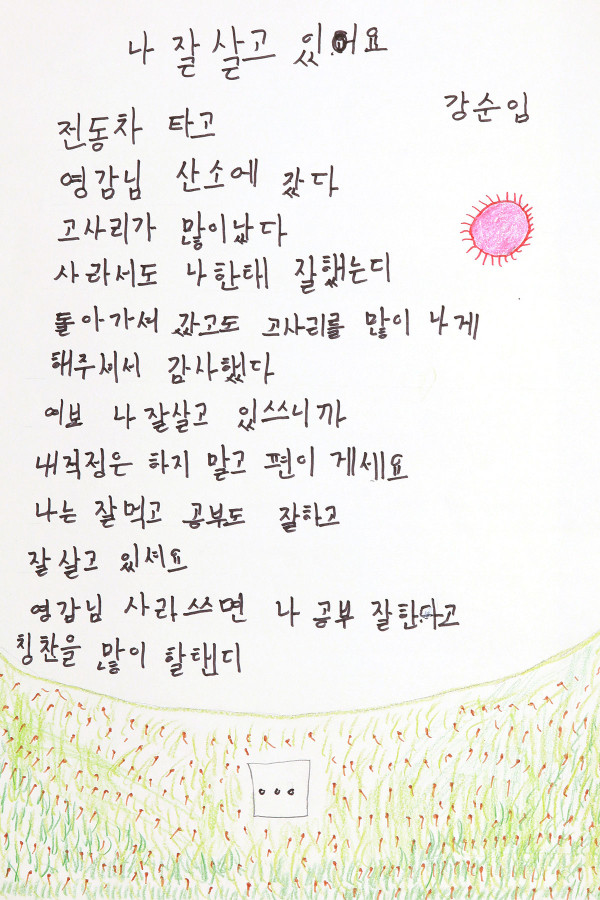 나 잘 살고 있어요
강순임
전동차 타고
영감님 산소에 갔다
고사리가 많이났다
사라서도 나한태 잘했는디
돌아가셔 갔고도 고사리를 많이 나게
해주세서 감사했다
여보 나 잘살고 있쓰니까
내걱정은 하지 말고 편이 게세요
나는 잘먹고 공부도 잘하고
잘 살고 있셔요
영감님 사라쓰면 나 공부 잘한다고
칭찬을 많이 할탠디